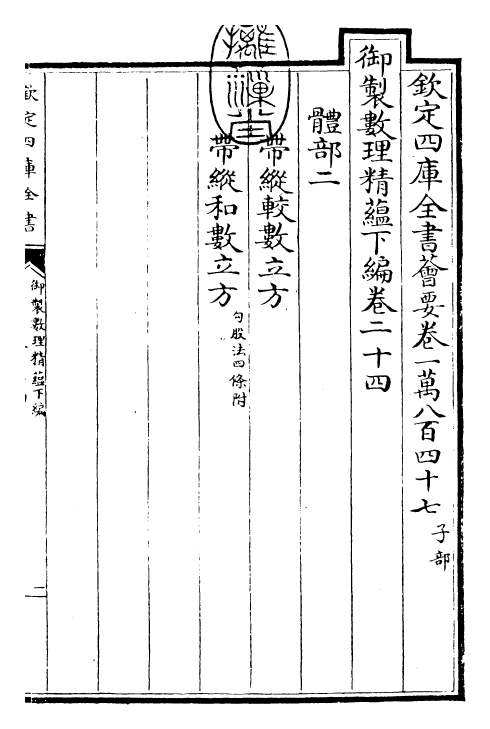 欽定四庫全書薈要卷一萬八百四十七 子部
御製數理精蘊下編卷二十四
體部二
帶縱較數立方
帶縱和數立方 勾股法四條附
欽定四庫全書
御製數理精蘊下編